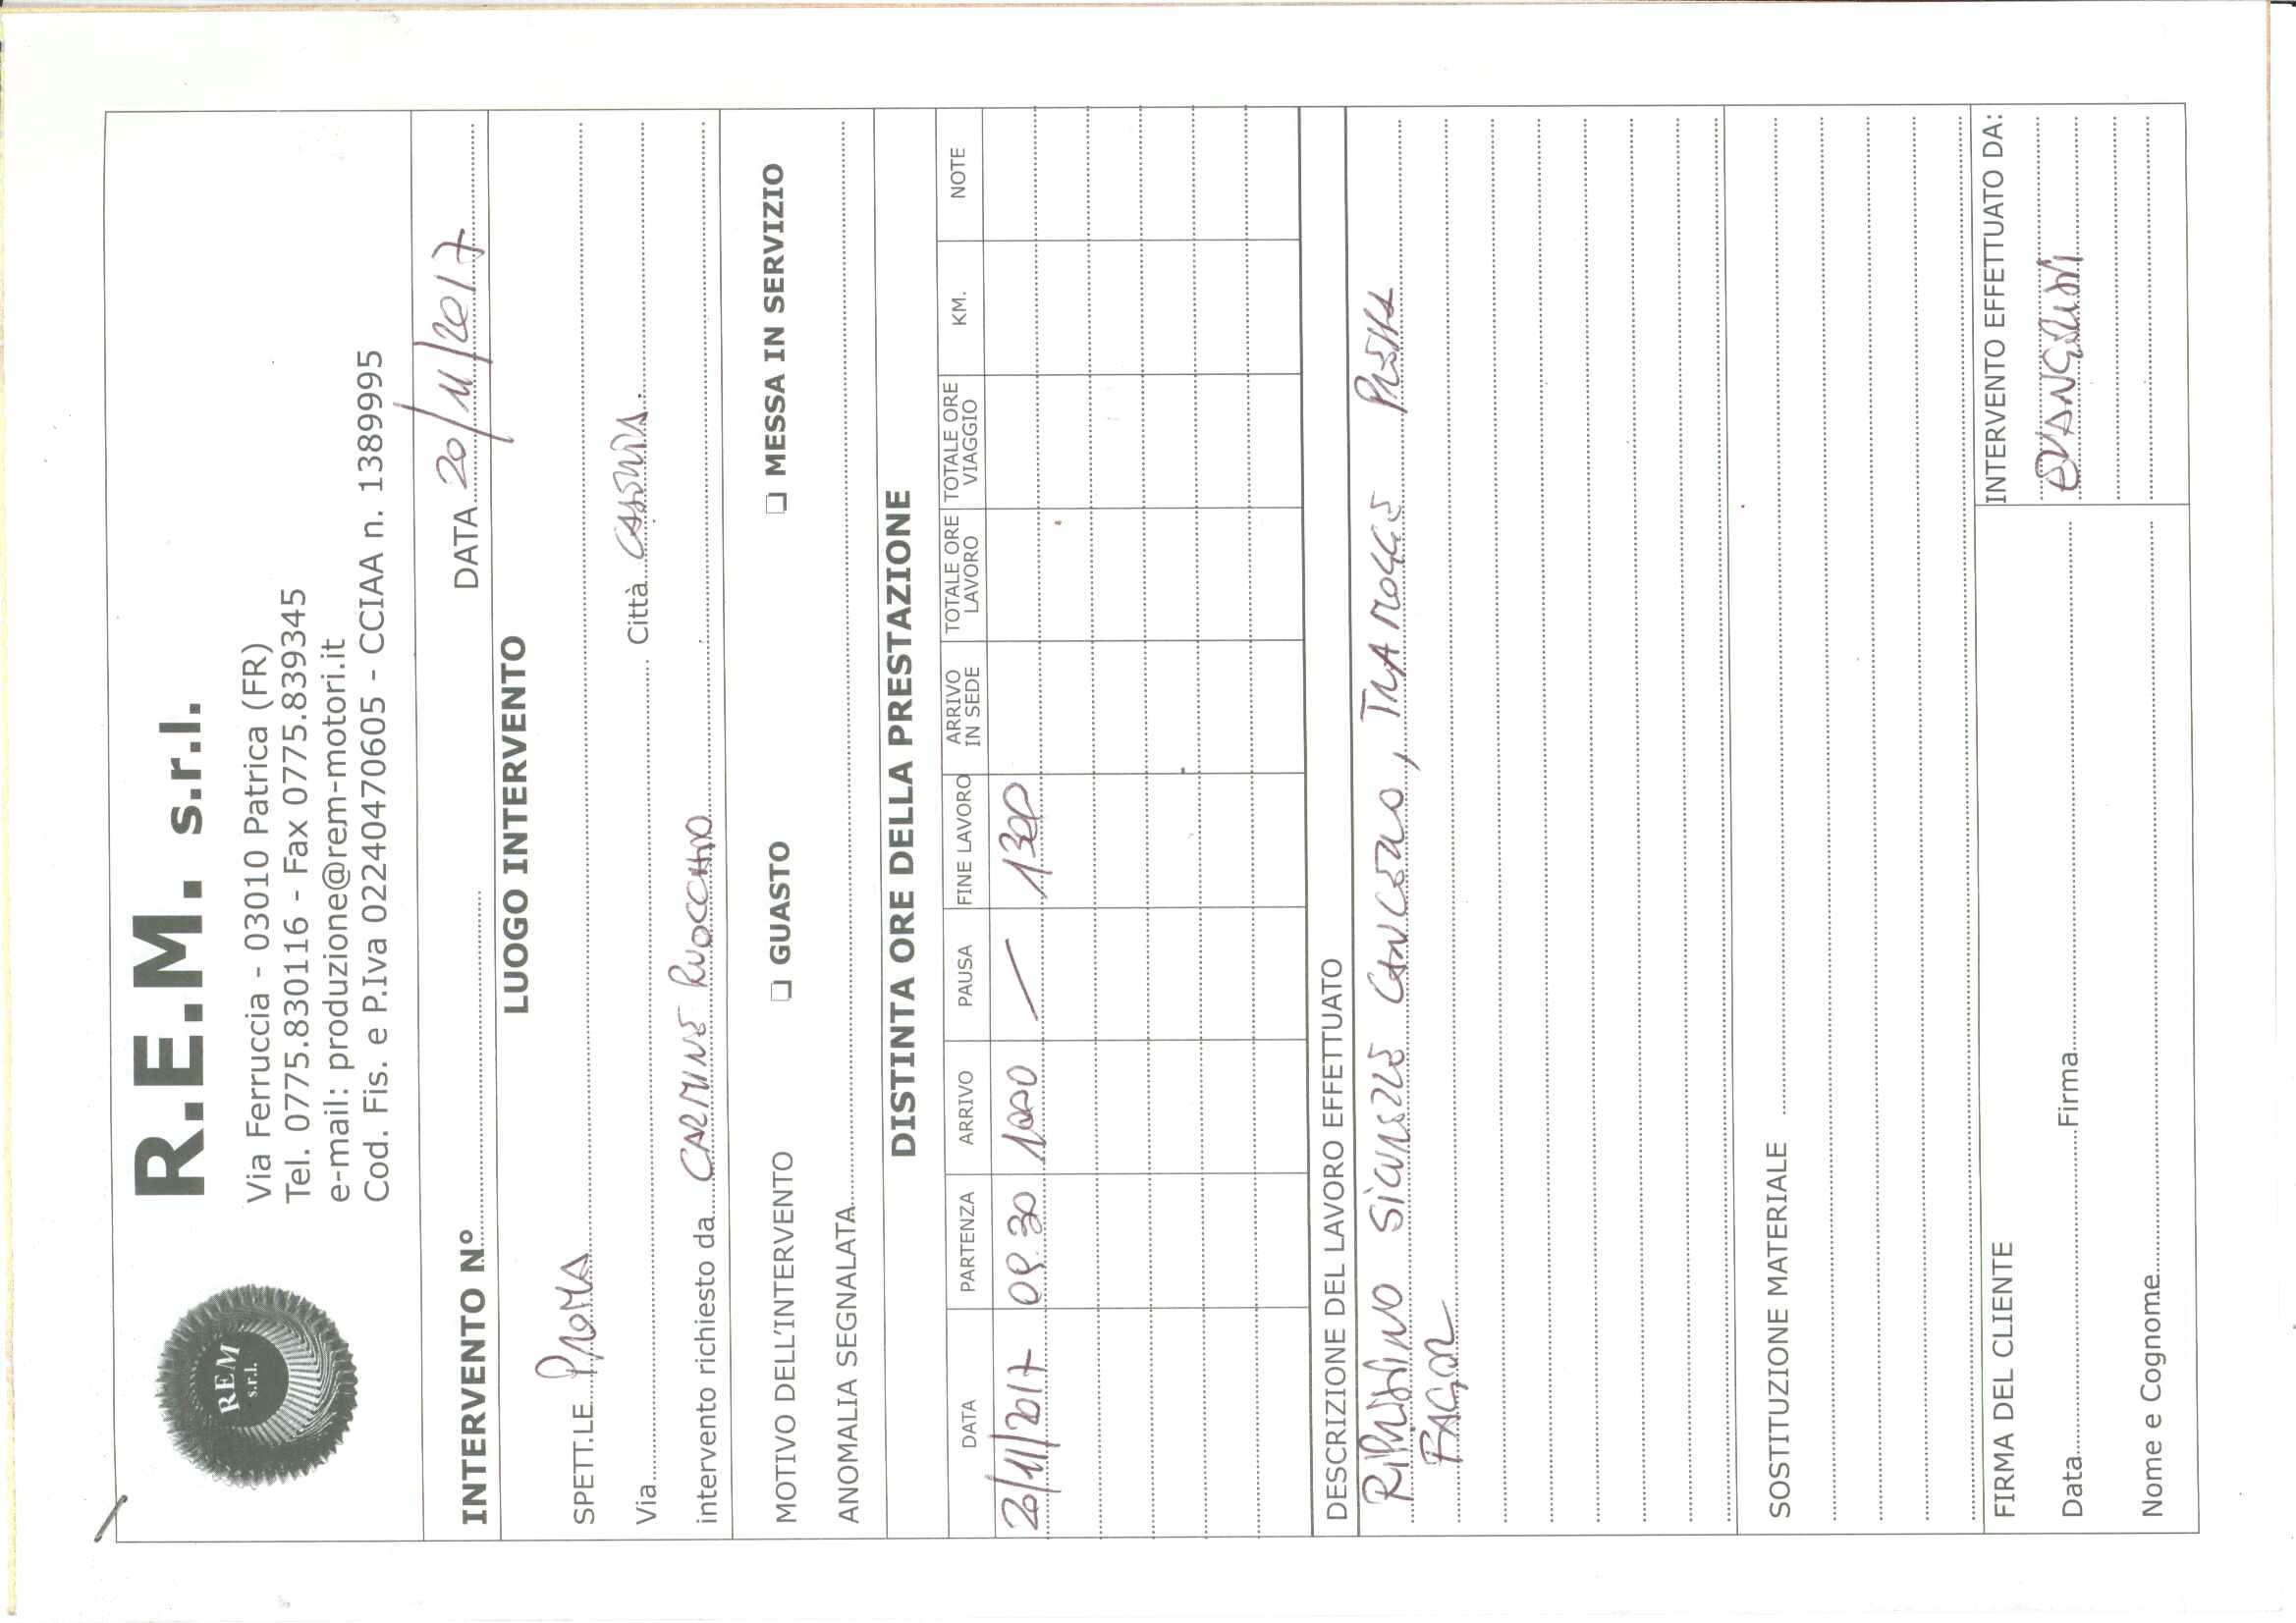 REM
s.r.l.
R.E.M. s.r.l.
Via Ferruccia - 03010 Patrica (FR)
Tel. 0775.830116 - Fax 0775.839345
e-mail: produzione@rem-motori.it
Cod. Fis. e P.Iva 02240470605 - CCIAA n. 1389995
INTERVENTO N° DATA 20/11/2017
LUOGO INTERVENTO
SPETT.LE PROMA
Via Città CASERTA
intervento richiesto da CARMINE RUOCCHIO
MOTIVO DELL'INTERVENTO ❏ GUASTO ❏ MESSA IN SERVIZIO
ANOMALIA SEGNALATA
DISTINTA ORE DELLA PRESTAZIONE
DATA PARTENZA ARRIVO PAUSA FINE LAVORO ARRIVO IN SEDE TOTALE ORE LAVORO TOTALE ORE VIAGGIO KM. NOTE
20/11/2017 09.30 1000 / 1300
DESCRIZIONE DEL LAVORO EFFETTUATO
RIPRISTINO SICUREZZE CANCELLO, TRAMOGGE PRESSA
FAGOR
SOSTITUZIONE MATERIALE
FIRMA DEL CLIENTE INTERVENTO EFFETTUATO DA:
Data Firma EVANGELISTI
Nome e Cognome